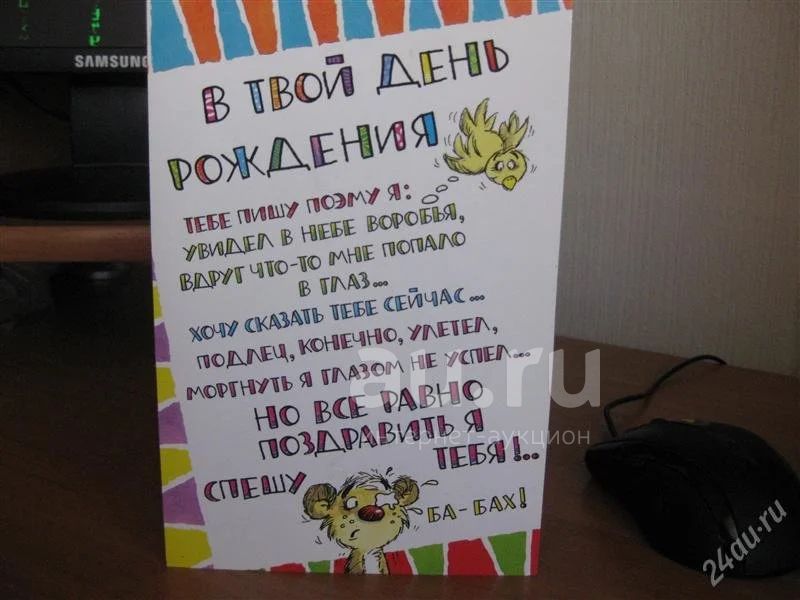 SAMSUNG
В ТВОЙ ДЕНЬ
РОЖДЕНИЯ
ТЕБЕ ПИШУ ПОЭМУ Я:
УВИДЕЛ В НЕБЕ ВОРОБЬЯ,
ВДРУГ ЧТО-ТО МНЕ ПОПАЛО
В ГЛАЗ...
ХОЧУ СКАЗАТЬ ТЕБЕ СЕЙЧАС...
ПОДЛЕЦ, КОНЕЧНО, УЛЕТЕЛ,
МОРГНУТЬ Я ГЛАЗОМ НЕ УСПЕЛ...
НО ВСЕ РАВНО
ПОЗДРАВИТЬ Я
СПЕШУ ТЕБЯ!..
БА-БАХ!
au.ru
интернет-аукцион
24au.ru